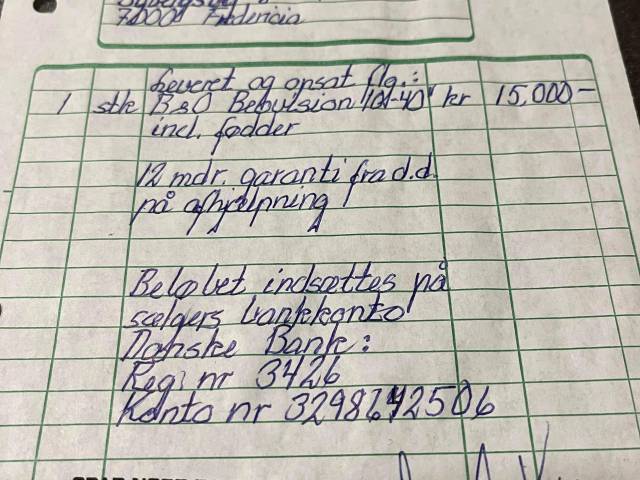 7000 Fredericia
Leveret og opsat flg.:
1 stk B&O Beovision 10-40" kr 15,000-
incl. fødder
12 mdr. garanti fra d.d.
på afhjælpning
Beløbet indsættes på
sælgers bankkonto
Danske Bank:
Reg: nr 3426
Konto nr